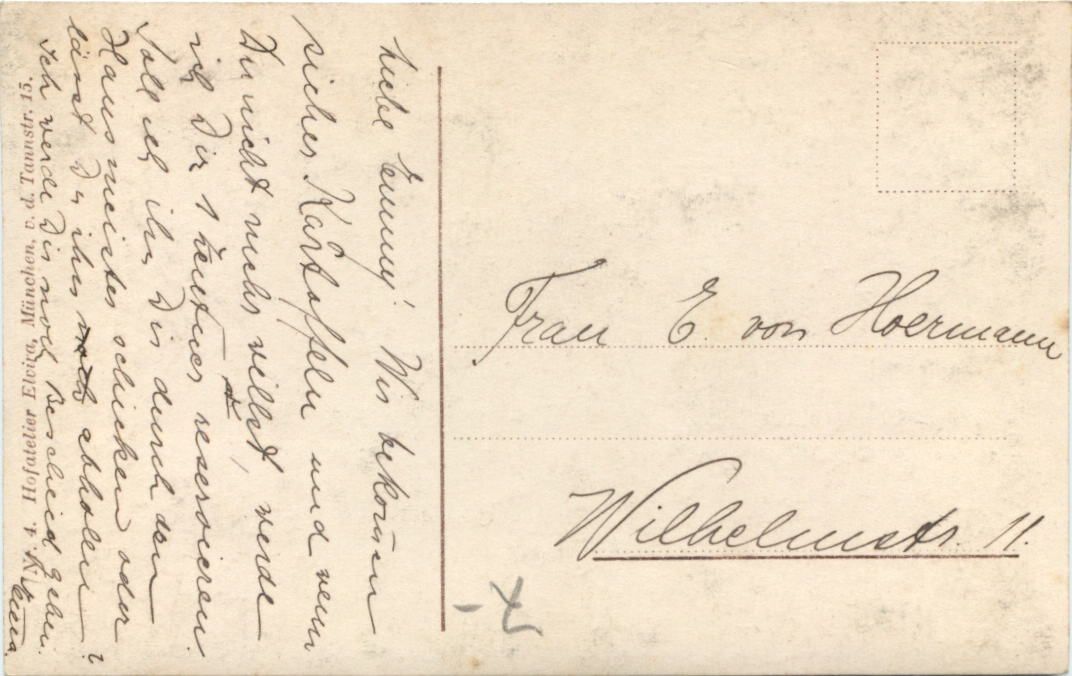 Liebe Emmy! Wir bekom̄en
sicher Kartoffeln und wenn
Du nicht mehr willst, werde
ich Dir 1 Zentner reservieren.
Soll ich ihn Dir durch den
Hausmeister schicken oder
lässt Du ihn abholen?
Ich werde Dir noch Bescheid geben.
Hofatelier Elvira, München, v. d. Tannstr. 15.
Frau E. von Hoermann
Wilhelmstr. 11.
7-